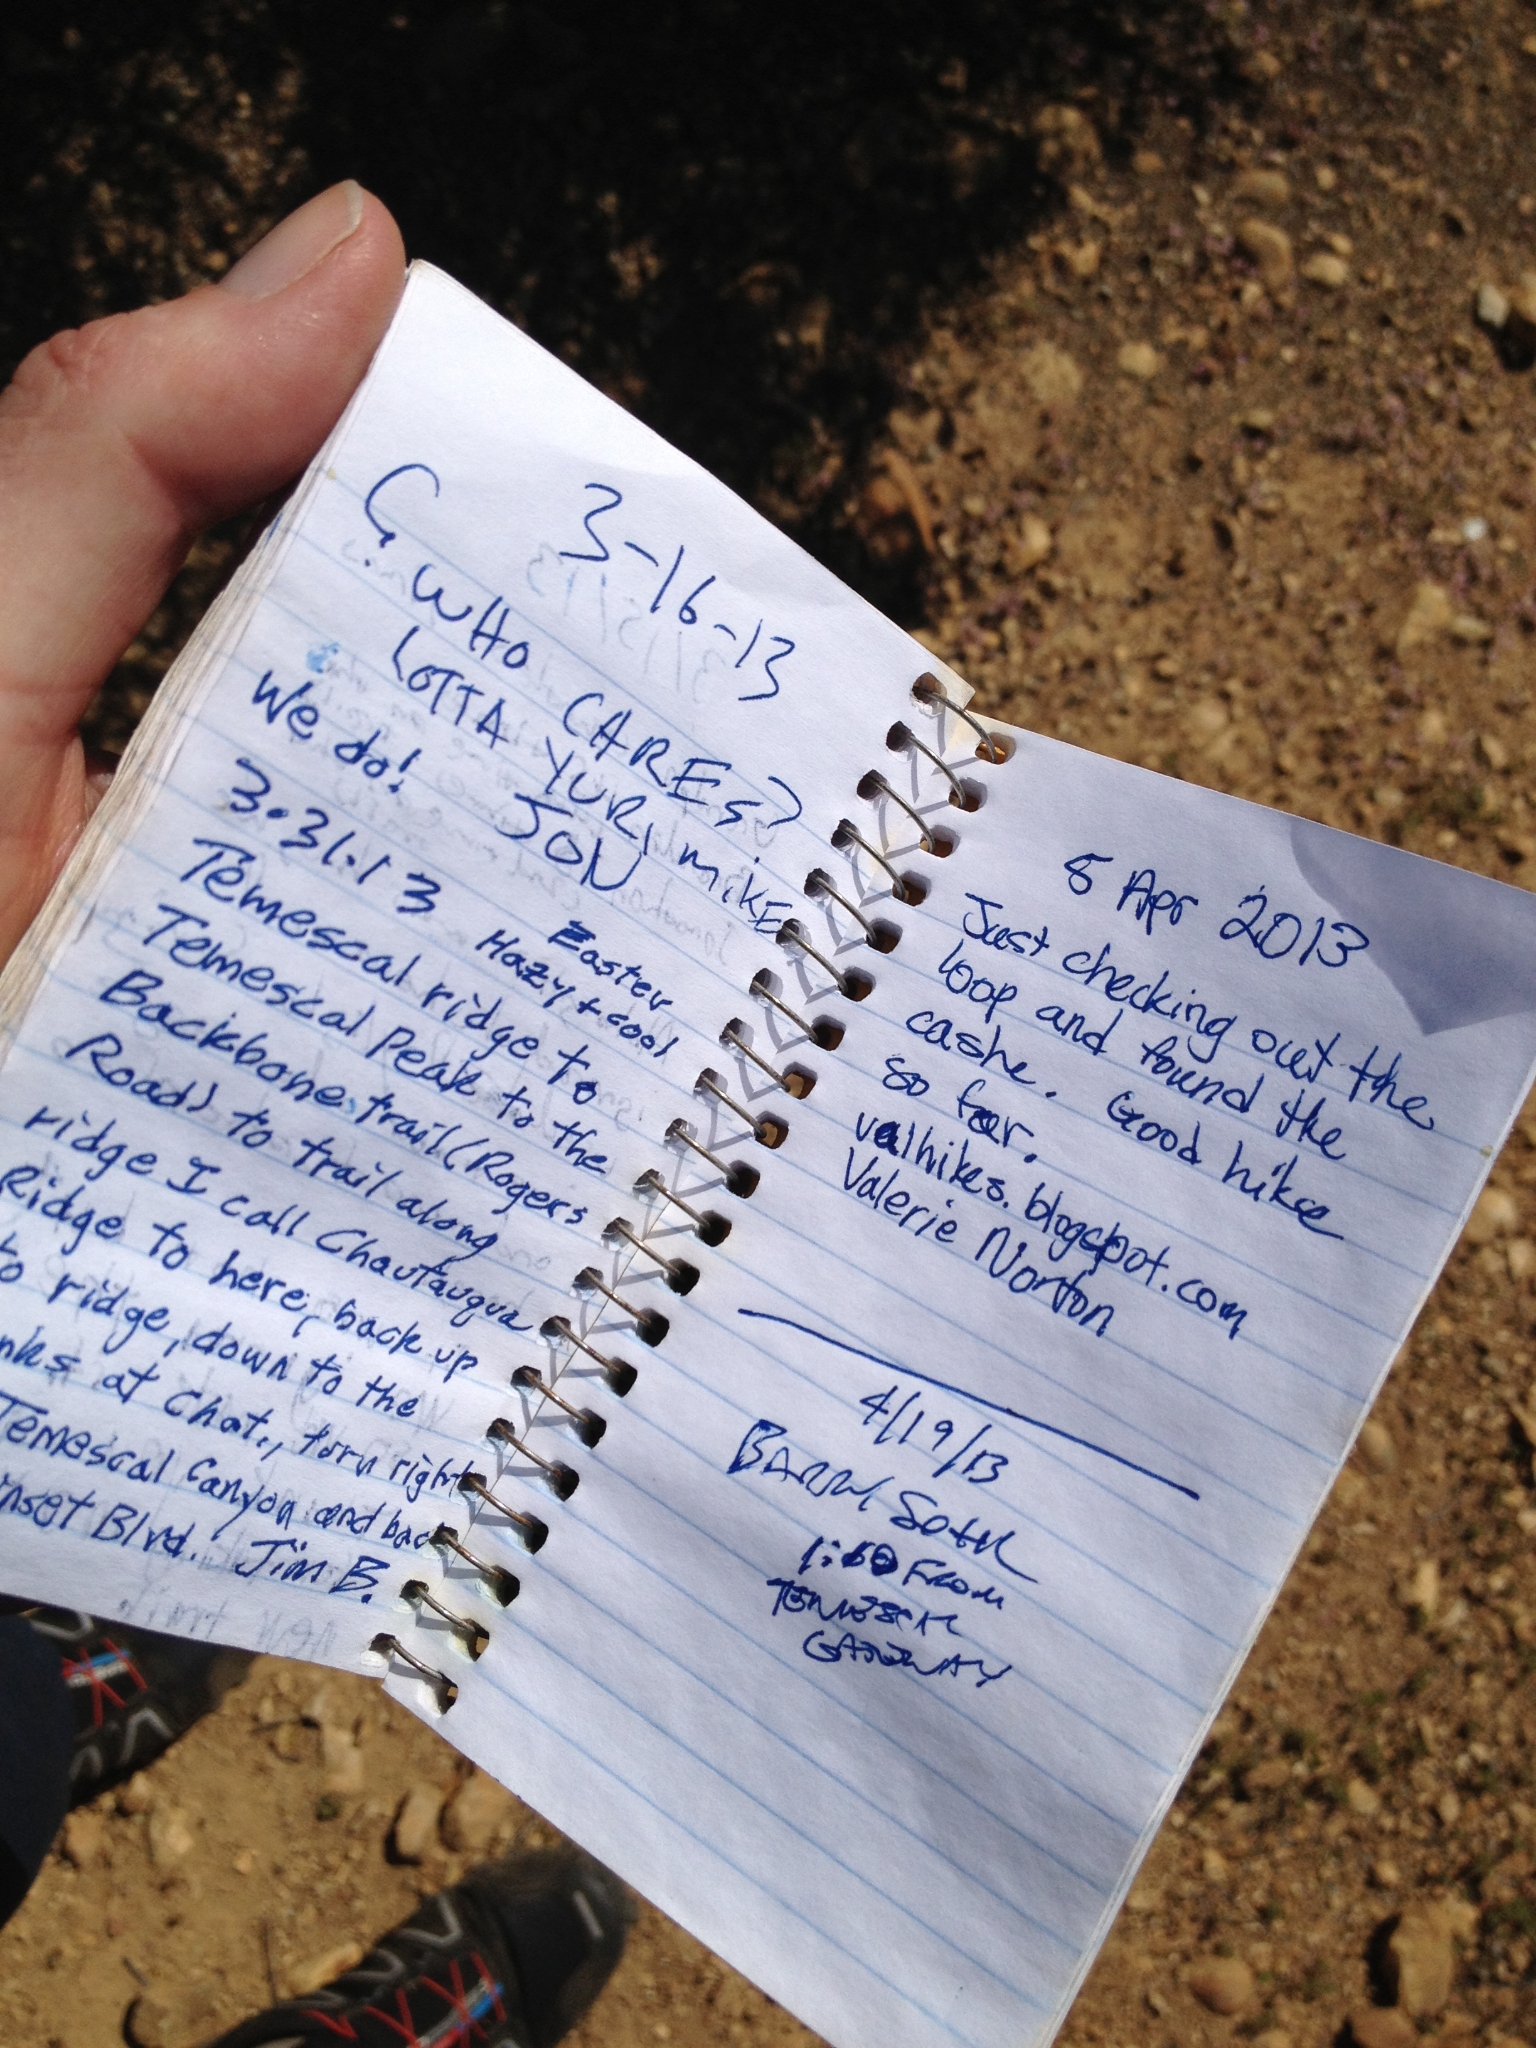 3-16-13
WHO CARES?
LOTTA YURI MIKE
JON
We do!
3.31.13 Easter
Hazy + cool
Temescal ridge to
Temescal Peak to the
Backbone trail (Rogers
Road) to trail along
ridge I call Chautauqua
Ridge to here, back up
to ridge, down to the
nks at Chat., turn right
Temescal Canyon and bac
nset Blvd. Jim B.
5 Apr 2013
Just checking out the
loop and found the
cashe. Good hike
so far.
valhikes.blogspot.com
Valerie Norton
4/19/13
FROM